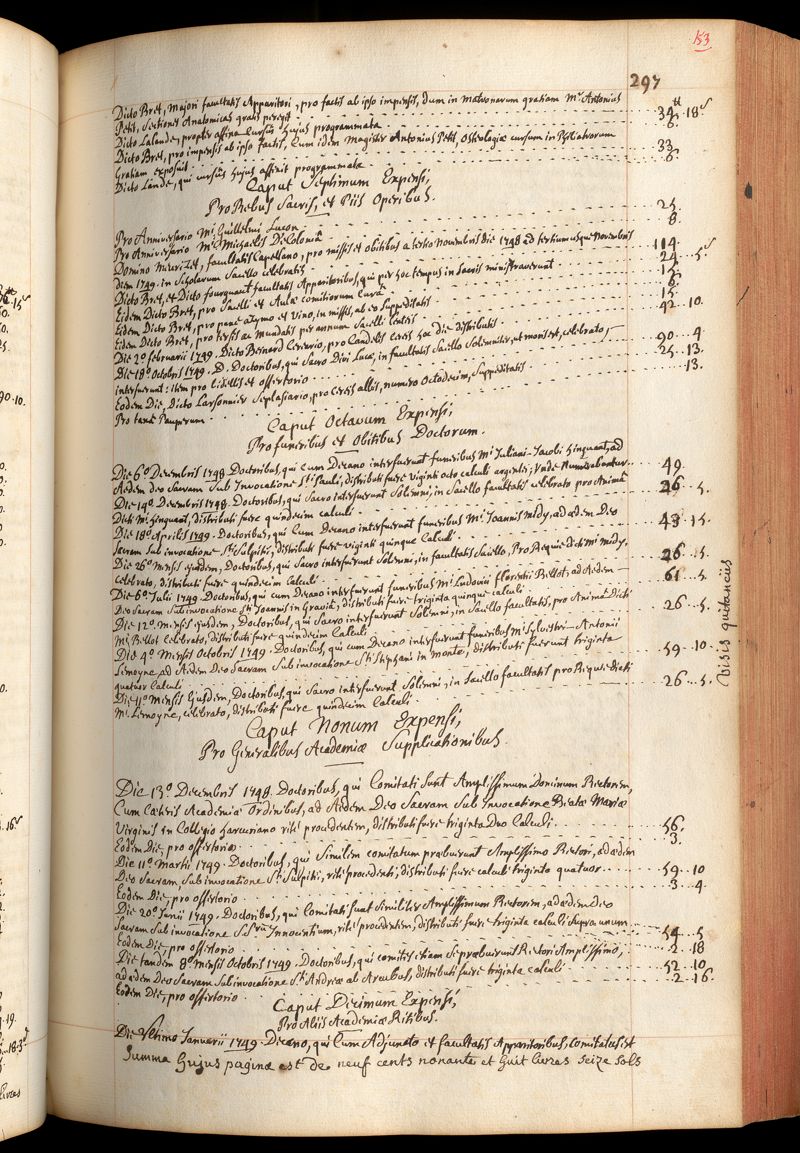 153
297
Dicto Bret, majori facultatis Apparitori, pro factis ab ipso impensis, dum in matronarum gratiam Mr Antonius
Petit, Sectiones Anatomicas gratis peregit 34tt 18s
Dicto Lalande, propter affixa Cursus hujus programmata 6.
Dicto Bret, pro impensis ab ipso factis, Cum idem Magister Antonius Petit, Osteologiæ cursum in Philiatrorum
Gratiam exposuit 33
Dicto Lande, qui cursus hujus affixit programmata 6.
Caput Septimum Expensi,
Pro Rebus Sacris, et Piis Operibus.
Pro Anniversario Mi Guillelmi Lucon 25
Pro Anniversario Mi Michaelis De Coloniâ 8.
Domino facultatis Capellano, pro missis et obitibus a tertio Novembris die 1748 ad tertium usque Novembris
diem 1749. in Scholarum Sacello celebratis 114
Dicto Bret, et Dicto fourquaut facultatis Apparitoribus, qui per hoc tempus in Sacris ministraverunt 24 5s
Eidem Dicto Bret, pro Sacelli et Aulæ comitiorum Curâ 15
Eidem Dicto Bret, pro pane azymo et Vino, in missis, ab eo Suppeditatis 6.
Eidem Dicto Bret, pro tersis ac Mundatis per annum Sacelli linteis 15
Die 2o februarii 1749. Dicto Bernard Cerario, pro Candelis Cereis hoc die distributis 42 10.
Die 18o Octobris 1749. D. Doctoribus, qui Sacro Divi Lucæ, in facultatis Sacello Solemniter, ut moris est, celebrato,
interfuerunt: item pro libellis et offertorio 90 4
Eodem Die, Dicto Larsonnier Seplasiario, pro Cereis albis, numero Octodecim, Suppeditatis 25. 13.
Pro tanti Pauperum 13.
Caput Octavum Expensi,
Pro funeribus et Obitibus Doctorum.
Die 6o Decembris 1748. Doctoribus, qui Cum Decano interfuerunt funeribus Mi Juliani-Jacobi hinguant, ad
Aedem deo Sacram Sub Invocatione Sti Pauli, distributi fuere viginti octo calculi argentei; Unde Numerabantur 49.
Die 14o Decembris 1748. Doctoribus, qui Sacro interfuerunt Solemni, in Sacello facultatis celebrato pro Animâ
Dicti Mi hinguant, distributi fuere quindecim calculi 26 5.
Die 18o Aprilis 1749. Doctoribus, qui Cum Decano interfuerunt funeribus Mi Joannis Midy, ad ædem Deo
Sacram Sub invocatione Sti Sulpitii, distributi fuere viginti quinque Calculi 43 15.
Die 26o Mensis ejusdem, Doctoribus, qui Sacro interfuerunt Solemni, in facultatis Sacello, Pro Requie dicti Mi Midy,
Celebrato, distributi fuere quindecim Calculi 26 5.
Die 6o Julii 1749. Doctoribus, qui cum Decano interfuerunt funeribus Mi Ludovici florentii Bellot, ad Aedem
Deo Sacram Sub invocatione Sti Joannis in Graviâ, distributi fuere triginta quinque calculi 61 5.
Die 12o. Mensis ejusdem, Doctoribus, qui Sacro interfuerunt Solemni, in Sacello facultatis, pro Animâ Dicti
Mi Bellot Celebrato, distributi fuere quindecim Calculi 26 5.
Die 4o Mensis Octobris 1749. Doctoribus, qui cum Decano interfuerunt funeribus Mi Sylvestri-Antonii
Lemoyne, ad Aedem Deo Sacram Sub invocatione Sti Stephani in monte, distributi fuerunt triginta
quatuor Calculi 59 10
Die 11o Mensis Ejusdem Doctoribus, qui Sacro interfuerunt Solemni, in Sacello facultatis pro Requie dicti
Mi Lemoyne, celebrato, distributi fuere quindecim Calculi 26 5.
visis quitancus
Caput Nonum Expensi,
Pro Generalibus Academiæ Supplicationibus.
Die 13o Decembris 1748. Doctoribus, qui Comitati Sunt Amplissimum Dominum Rectorem,
Cum Cæteris Academiæ Ordinibus, ad Aedem Deo Sacram Sub Invocatione Beatæ Mariæ
Virginis in Collegio harcuriano rite procedentem, distributi fuere triginta Duo Calculi 56.
Eodem Die, pro offertorio 3.
Die 11o Martii 1749. Doctoribus, qui Similem comitatum præbuerunt Amplissimo Rectori, ad ædem
Deo Sacram, Sub invocatione Sti Sulpitii, rite procedenti, distributi fuere calculi triginta quatuor 59 10
Eodem Die, pro offertorio 3 4
Die 20o Junii 1749. Doctoribus, qui Comitati Sunt Similiter Amplissimum Rectorem, ad ædem Deo
Sacram Sub invocatione SSrum Innocentium, rite procedentem, distributi fuere triginta calculi Supra unum 54 5
Eodem Die, pro offertorio 2 18
Die tandem 8o Mensis Octobris 1749. Doctoribus, qui comites etiam Se præbuerunt Rectori Amplissimo,
ad ædem Deo Sacram Sub invocatione Sti Andreæ ab Arcubus, distributi fuere triginta calculi 52 10
Eodem Die, pro offertorio 2 16.
Caput Decimum Expensi,
Pro Aliis Academiæ Ritibus.
Die Ultimo Januarii 1749. Decano, qui Cum Adjuncto et facultatis Apparitoribus, Comitatus est
Summa hujus paginæ est de neuf cents nonante et huit livres seize sols